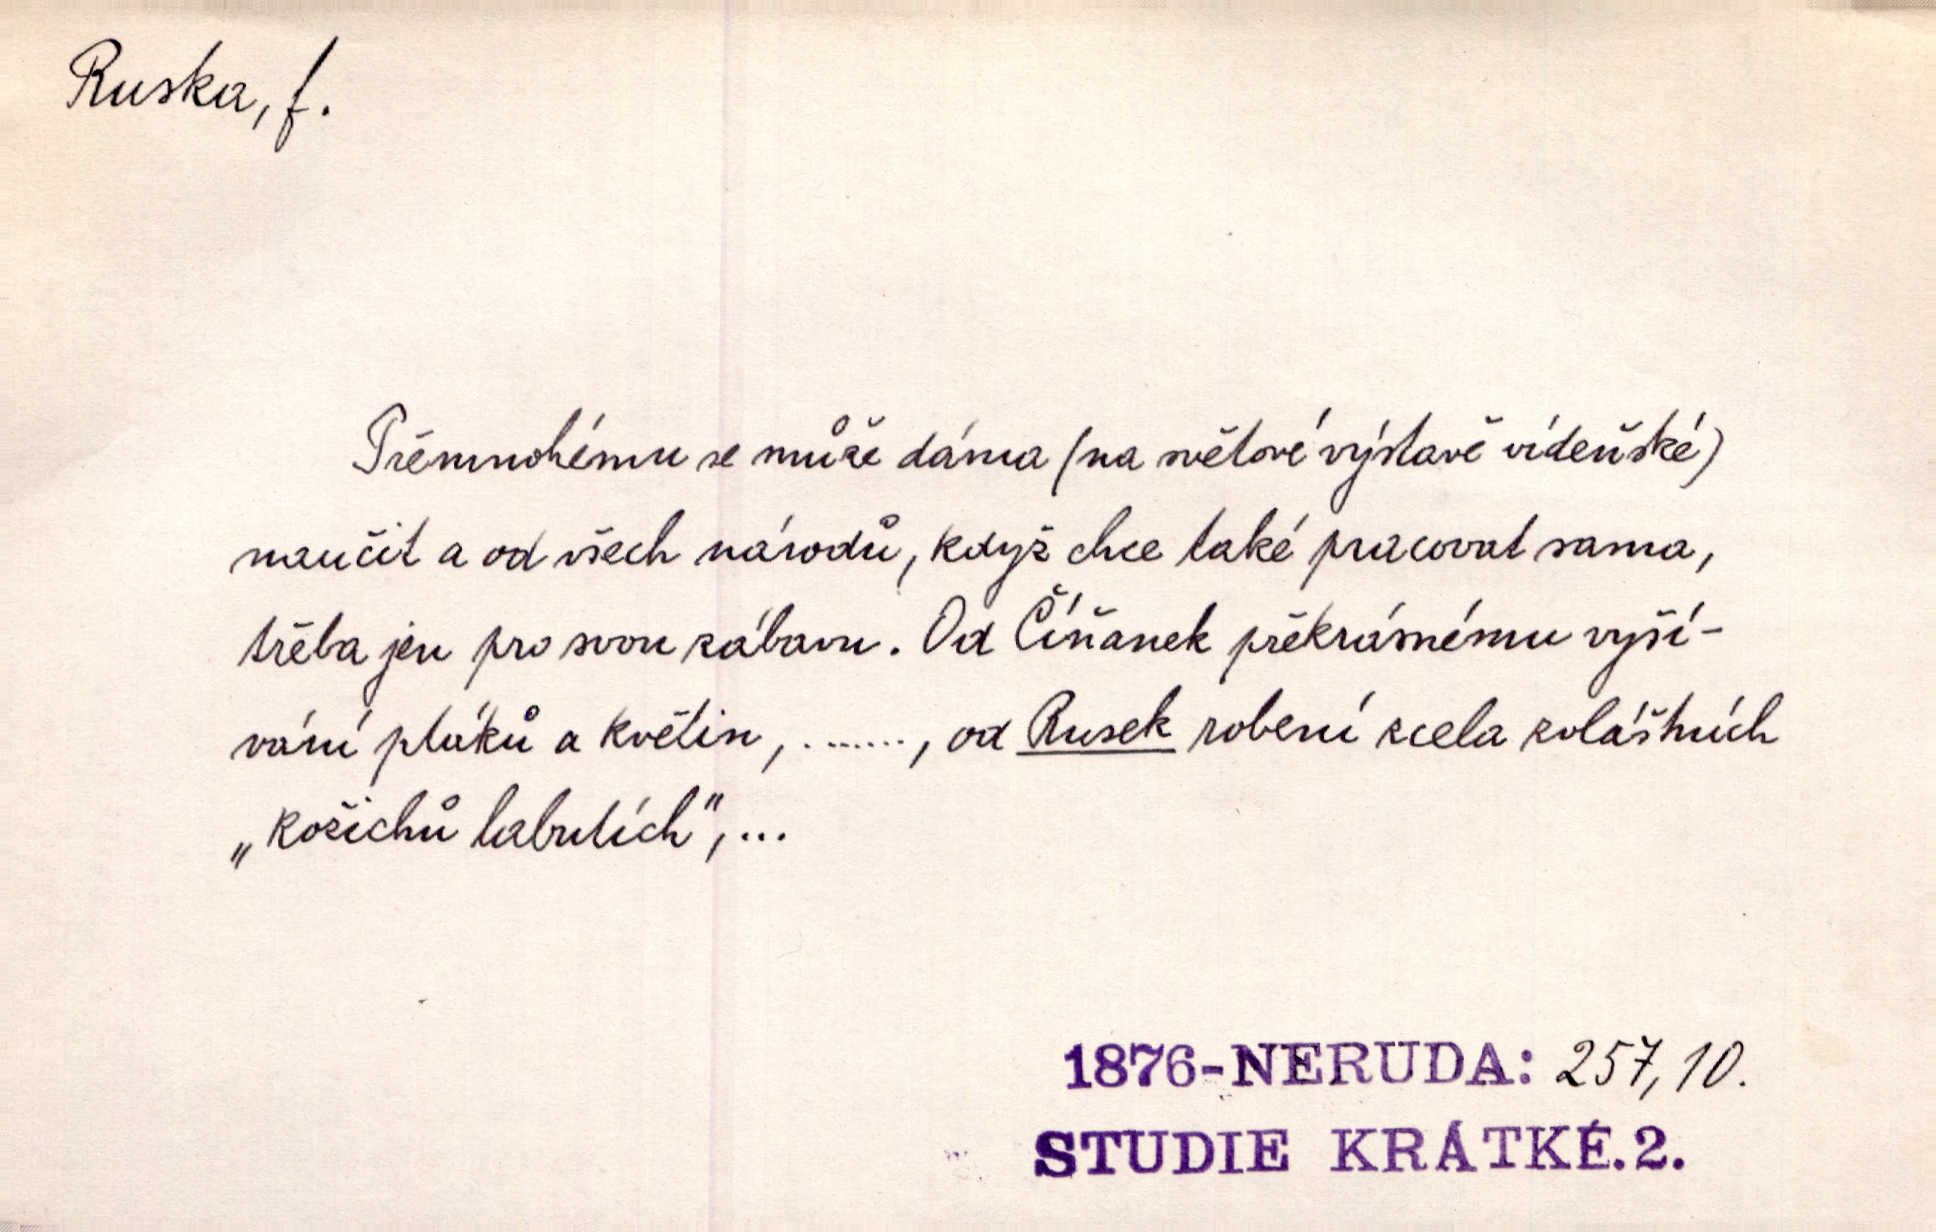 Ruska, f.
Přemnohému se může dáma (na světové výstavě vídeňské)
naučit a od všech národů, když chce také pracovat sama,
třeba jen pro svou zábavu. Od Číňanek překrásnému vyší-
vání ptáků a květin, ........, od Rusek robení zcela zvláštních
„kožichů labutích", ...
1876-NERUDA: 257, 10.
STUDIE KRÁTKÉ.2.